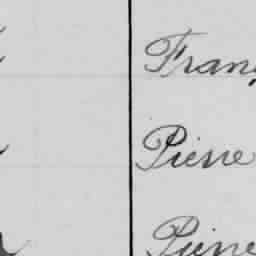 Franç
Pierre
Pierre